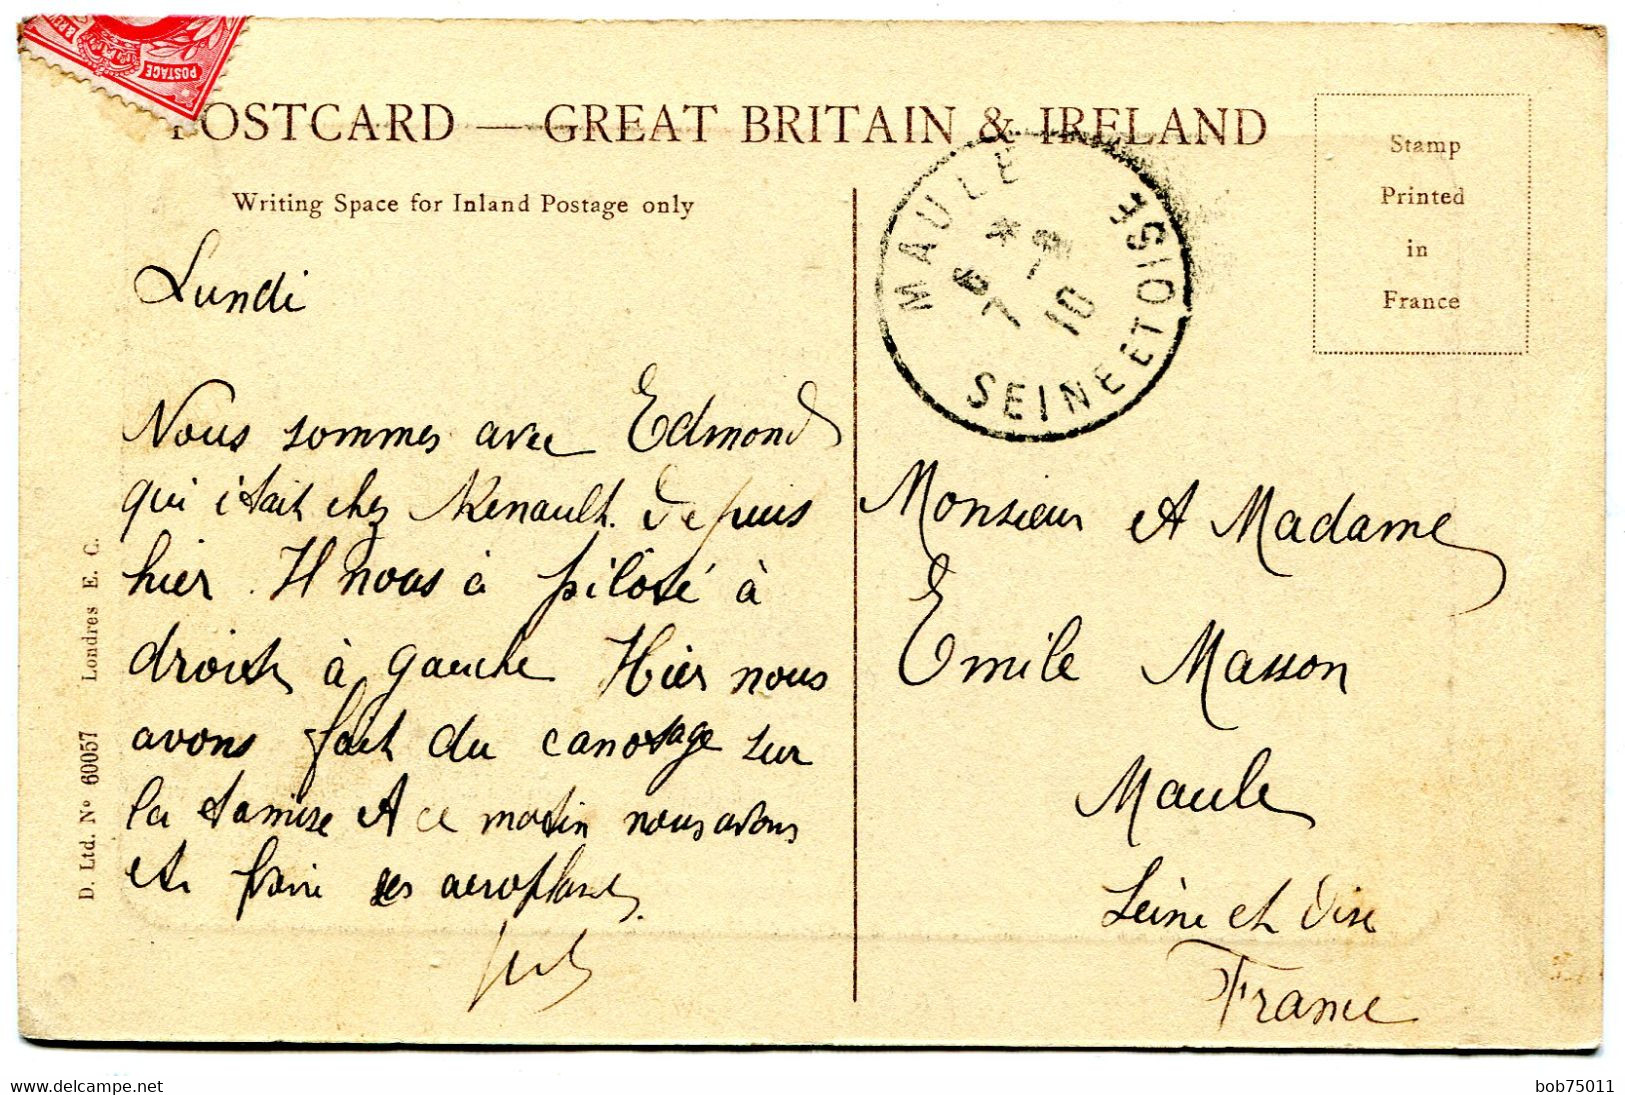 POSTAGE
POSTCARD — GREAT BRITAIN & IRELAND
Writing Space for Inland Postage only
Stamp
Printed
in
France
MAULE
SEINE ET OISE
* 
6 7
7 10
Lundi
Nous sommes avec Edmond
qui était chez Renault. depuis
hier. Il nous à piloté à
droite à gauche Hier nous
avons fait du canotage sur
la tamise et ce matin nous avons
été faire les aeroplanes.
Monsieur et Madame
Emile Masson
Maule
Seine et Oise
France
D. Ltd. Nº 60057 Londres E. C.
Delcampe.net
bob75011